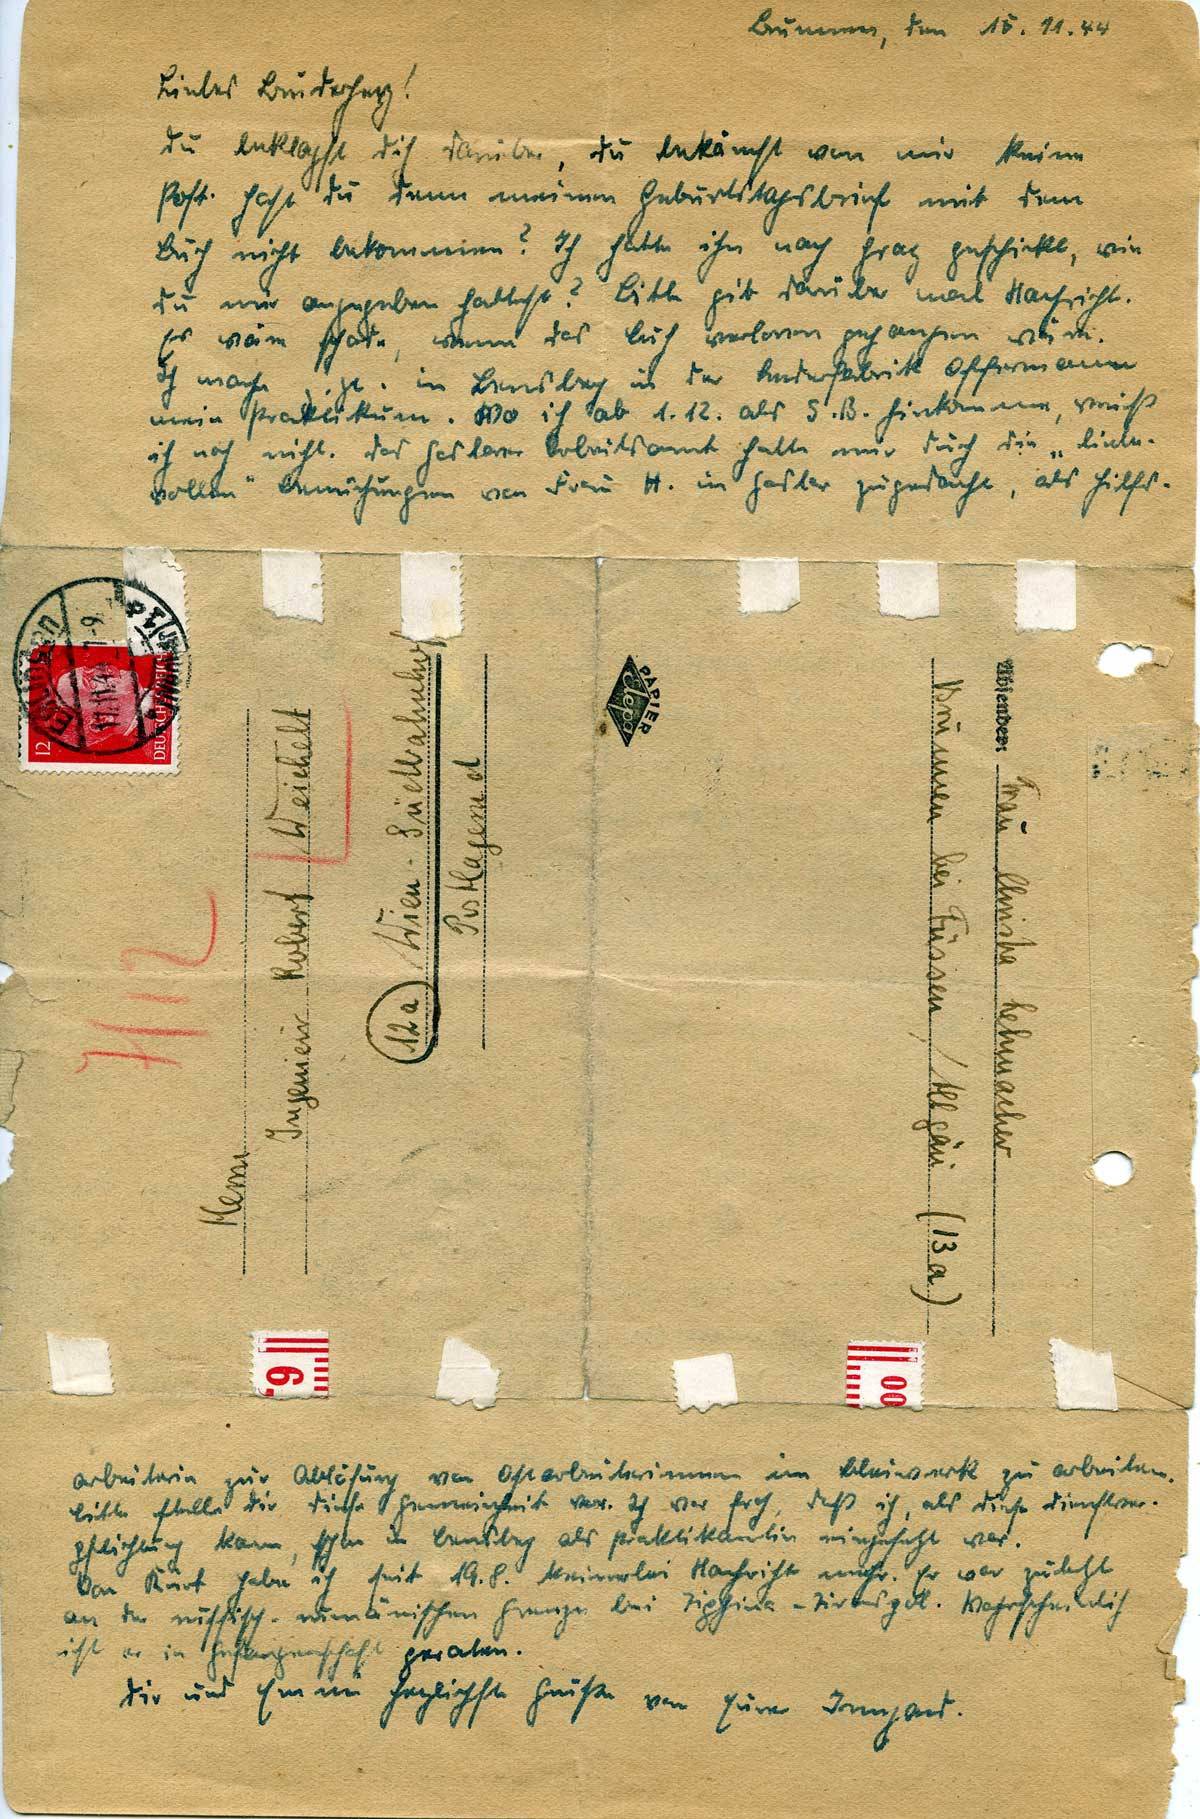 Brunnen, den 15.11.44
Liebes Bruderherz!
Du beklagst dich darüber, du bekämst von mir keine
Post. Hast du denn meinen Geburtstagsbrief mit dem
Buch nicht bekommen? Ich hatte ihn nach Graz geschickt, wie
du mir angegeben hattest? Bitte gib darüber mal Nachricht.
Es wäre schade, wenn das Buch verloren gegangen wäre.
Ich mache z.Zt. in Bensberg in der Lederfabrik Offermann
mein Praktikum. Wo ich ab 1.12. als S.B. hinkomme, weiß
ich noch nicht. Das Goslarer Arbeitsamt hatte mir durch die „liebe-
vollen" Bemühungen von Frau H. in Goslar zugedacht, als Hilfs-
12
DEUTSCHES REICH
17.11.44 7-9
Herrn
Ingenieur Robert Weichelt
(12a) Wien-Südbahnhof
Postlagernd
412
PAPIER
Absender: Frau Christa Lehmacher
Brunnen bei Füssen / Allgäu (13a)
6.
00
arbeiterin zur Ablösung von Ostarbeiterinnen im Bleiwerk zu arbeiten.
Bitte stelle dir diese Gemeinheit vor. Ich war froh, daß ich, als diese Dienstver-
pflichtung kam, schon in Bensberg als Praktikantin eingesetzt war.
Von Kurt habe ich seit 19.8. keinerlei Nachricht mehr. Er war zuletzt
an der russisch-rumänischen Grenze bei Tighina-Tiraspol. Wahrscheinlich
ist er in Gefangenschaft geraten.
Dir und Emmi herzlichste Grüße von Eurer Irmgard.